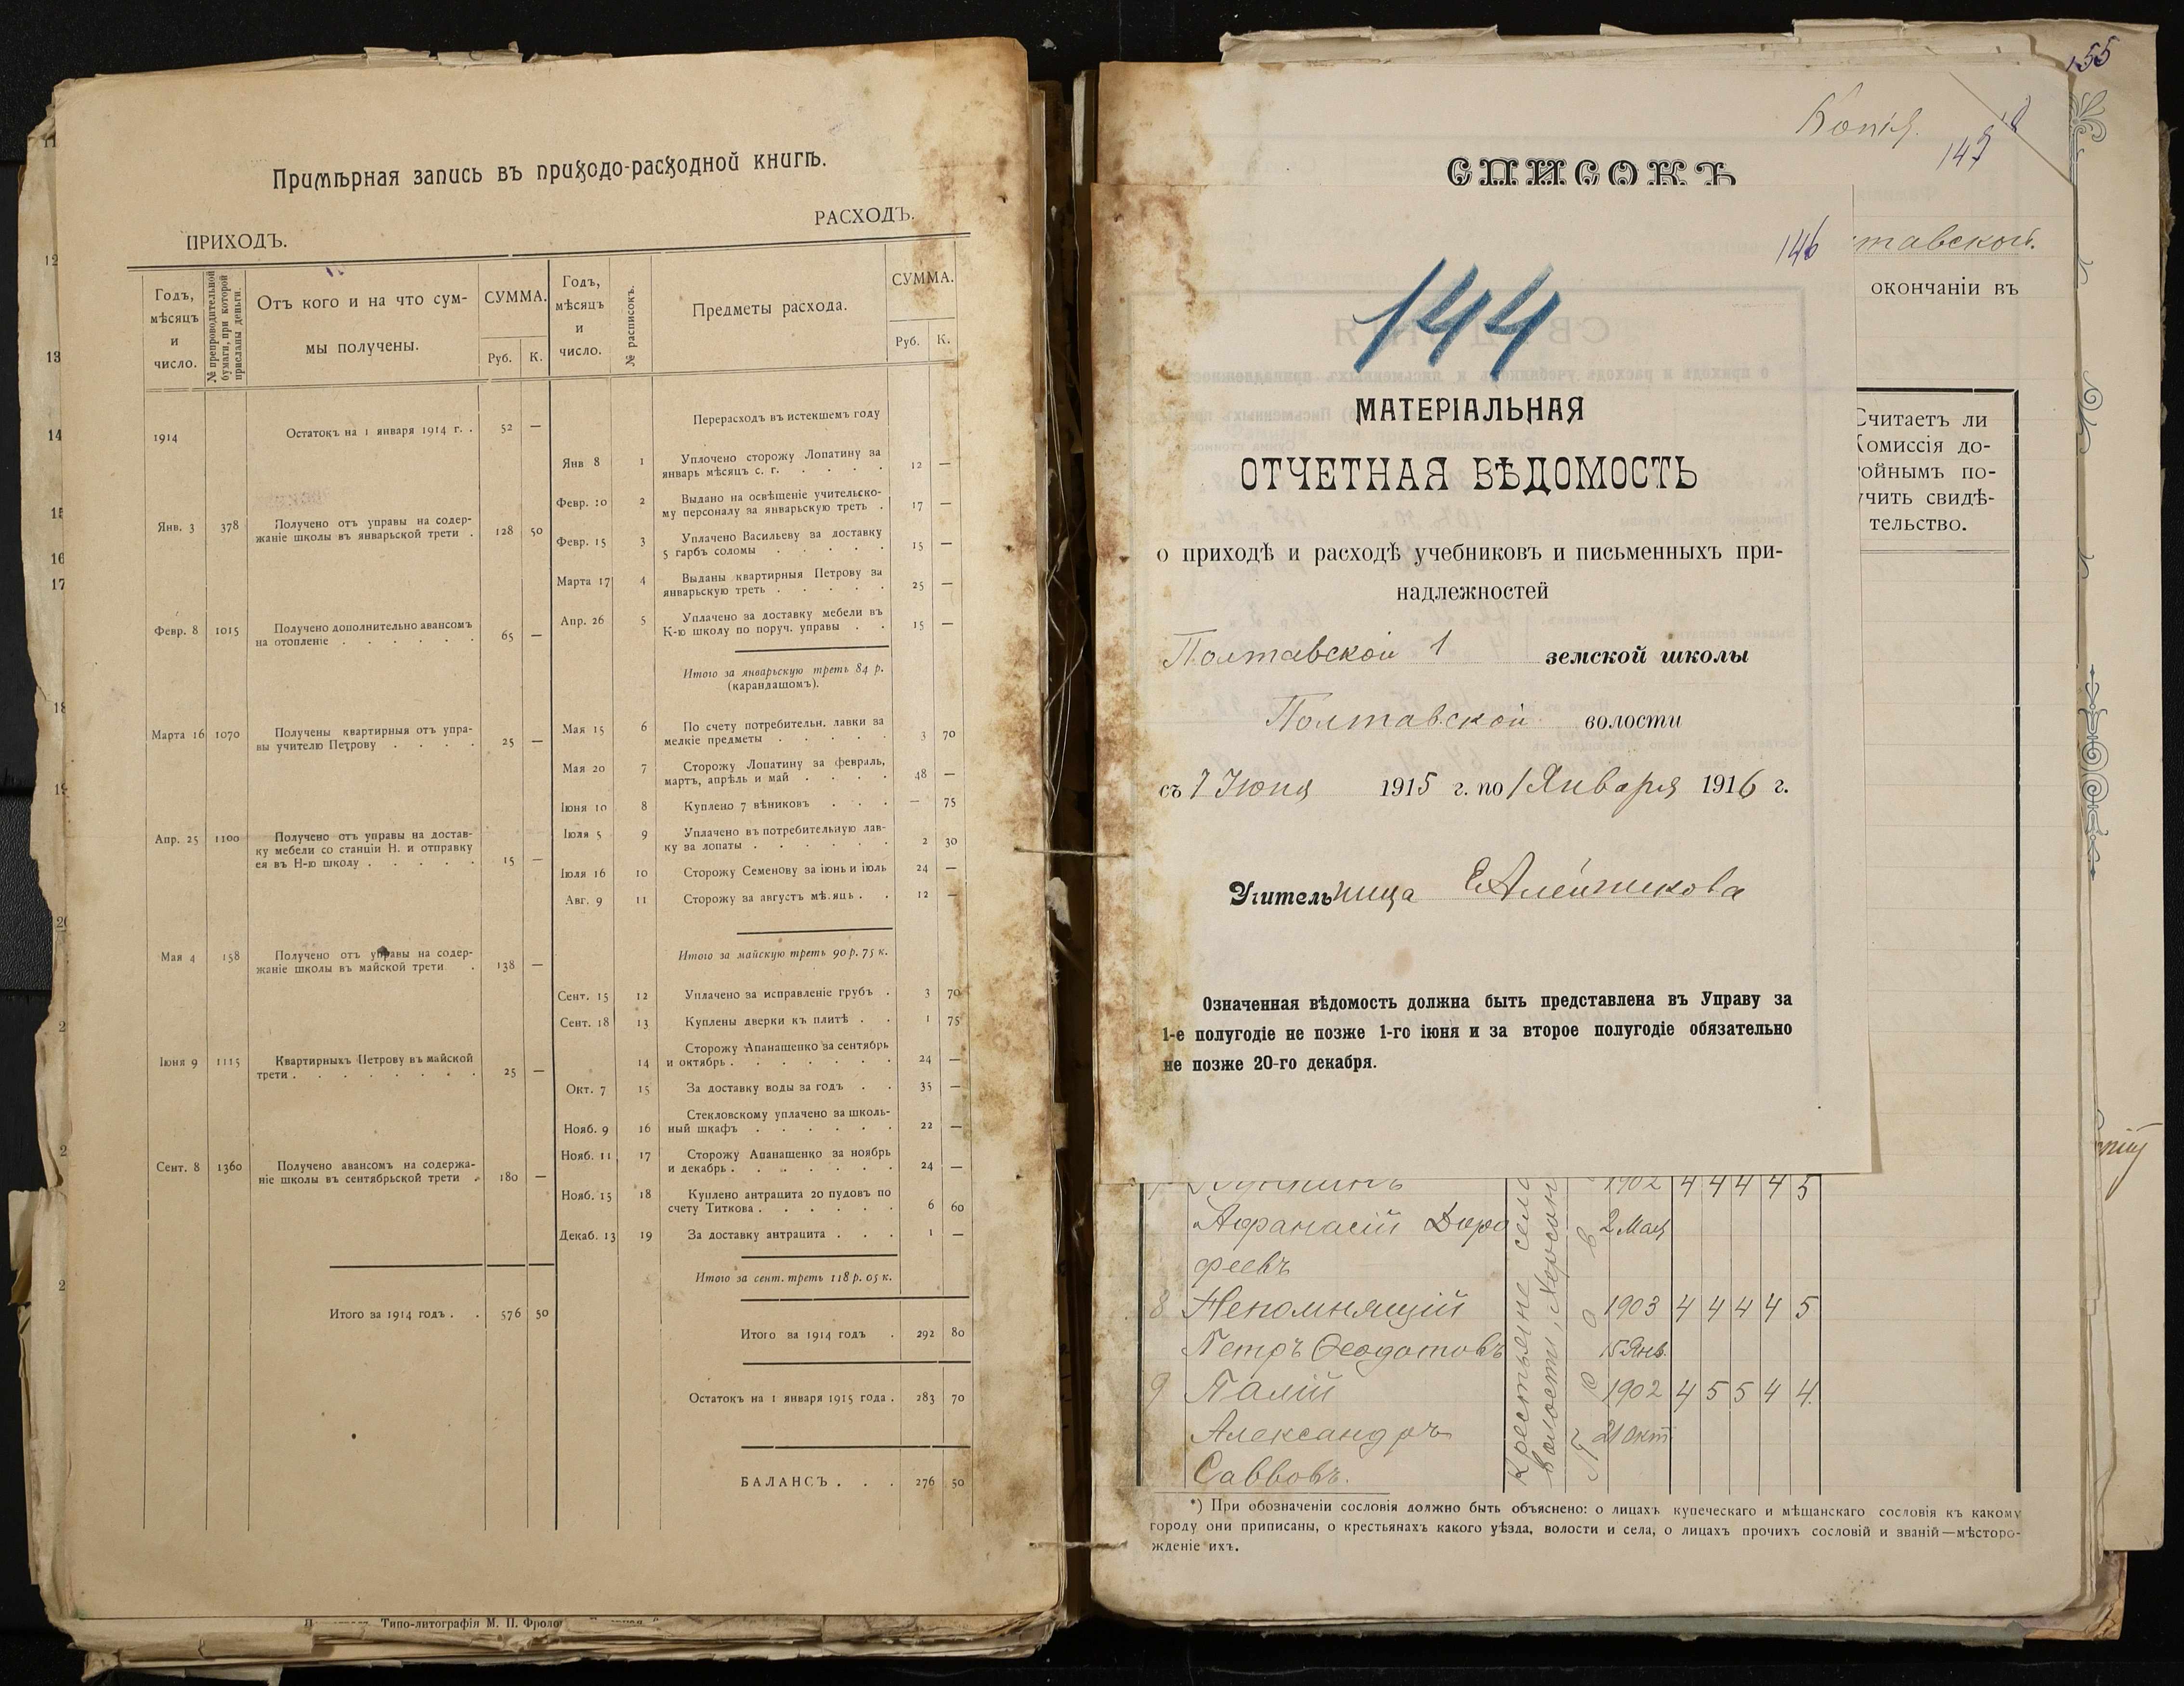 Примѣрная запись въ приходо-расходной книгѣ.
ПРИХОДЪ.
РАСХОДЪ.
Годъ, мѣсяцъ и число.
№ препроводительной бумаги, при которой присланы деньги.
Отъ кого и на что суммы получены.
СУММА.
Руб. К.
Годъ, мѣсяцъ и число.
№ расписокъ.
Предметы расхода.
СУММА.
Руб. К.
1914 Остатокъ на 1 января 1914 г. . 52 —
Янв. 3 378 Получено отъ управы на содер-
жаніе школы въ январской трети . 128 50
Февр. 8 1015 Получено дополнительно авансомъ
на отопленіе . . . . . . 65 —
Марта 16 1070 Получены квартирныя отъ упра-
вы учителю Петрову . . . . 25 —
Апр. 25 1100 Получено отъ управы на достав-
ку мебели со станціи Н. и отправку
ея въ Н-ю школу . . . . . 15 —
Мая 4 158 Получено отъ управы на содер-
жаніе школы въ майской трети . 138 —
Іюня 9 1115 Квартирныхъ Петрову въ майской
трети . . . . . . . . 25 —
Сент. 8 1360 Получено авансомъ на содержа-
ніе школы въ сентябрьской трети . 180 —
Итого за 1914 годъ . . 576 50
Перерасходъ въ истекшемъ году
Янв 8 1 Уплочено сторожу Лопатину за
январь мѣсяцъ с. г. . . . . 12 —
Февр. 10 2 Выдано на освѣщеніе учительско-
му персоналу за январьскую треть . 17 —
Февр. 15 3 Уплачено Васильеву за доставку
5 гарбъ соломы . . . . . 15 —
Марта 17 4 Выданы квартирныя Петрову за
январьскую треть . . . . . 25 —
Апр. 26 5 Уплачено за доставку мебели въ
К-ю школу по поруч. управы . . 15 —
Итого за январьскую треть 84 р.
(карандашомъ).
Мая 15 6 По счету потребительн. лавки за
мелкіе предметы . . . . . 3 70
Мая 20 7 Сторожу Лопатину за февраль,
мартъ, апрѣль и май . . . . 48 —
Іюня 10 8 Куплено 7 вѣниковъ . . . — 75
Іюля 5 9 Уплачено въ потребительную лав-
ку за лопаты . . . . . . 2 30
Іюля 16 10 Сторожу Семенову за іюнь и іюль 24 —
Авг. 9 11 Сторожу за августъ мѣ.яць . . 12 —
Итого за майскую треть 90 р. 75 к.
Сент. 15 12 Уплачено за исправленіе грубъ . 3 70
Сент. 18 13 Куплены дверки къ плитѣ . . 1 75
14 Сторожу Апанащенко за сентябрь
и октябрь . . . . . . . 24 —
Окт. 7 15 За доставку воды за годъ . . 35 —
Нояб. 9 16 Стекловскому уплачено за школь-
ный шкафъ . . . . . . 22 —
Нояб. 11 17 Сторожу Апанащенко за ноябрь
и декабрь . . . . . . . 24 —
Нояб. 15 18 Куплено антрацита 20 пудовъ по
счету Титкова . . . . . . 6 60
Декаб. 13 19 За доставку антрацита . . . 1 —
Итого за сент. треть 118 р. 05 к.
Итого за 1914 годъ . 292 80
Остатокъ на 1 января 1915 года . 283 70
БАЛАНСЪ . . . 276 50
Типо-литографія М. П. Фроло
155
Копія.
147
СПИСОКЪ
146
тавской.
окончаніи въ
144
МАТЕРІАЛЬНАЯ
ОТЧЕТНАЯ ВѢДОМОСТЬ
о приходѣ и расходѣ учебниковъ и письменныхъ при-
надлежностей
Полтавской 1 земской школы
Полтавской волости
съ 1 Июня 1915 г. по 1 Января 1916 г.
Учительница Е Алейникова
Означенная вѣдомость должна быть представлена въ Управу за
1-е полугодіе не позже 1-го іюня и за второе полугодіе обязательно
не позже 20-го декабря.
Считаетъ ли
Комиссія до-
ойнымъ по-
учить свидѣ-
тельство.
1902 4 4 4 4 5
Афанасій Доро 2 Мая
феевъ
8 Непомнящій 1903 4 4 4 4 5
Петръ Ѳеодотовъ 15 Янв.
9 Палій 1902 4 5 5 4 4
Александръ 21 Окт
Саввовъ.
Крестьяне села
волости, Херсон
*) При обозначеніи сословія должно быть объяснено: о лицахъ купеческаго и мѣщанскаго сословія къ какому
городу они приписаны, о крестьянахъ какого уѣзда, волости и села, о лицахъ прочихъ сословій и званій—мѣсторо-
жденіе ихъ.